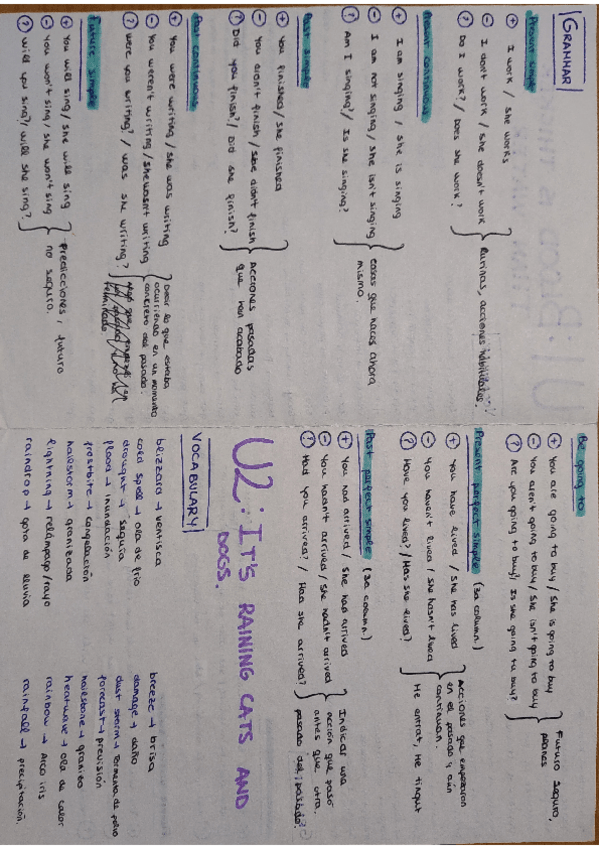 GRAMMAR
Present simple
+ I work / She works
- I don't work / She doesn't work
? Do I work? / Does she work?
Rutinas, acciones habituales.
Present continuous
+ I am singing / She is singing
- I am not singing / She isn't singing
? Am I singing? / Is she singing?
cosas que haces ahora
mismo.
Past simple
+ You finished / She finished
- You didn't finish / She didn't finish
? Did you finish? / Did she finish?
Acciones pasadas
que han acabado
Past continuous
+ You were writing / She was writing
- You weren't writing / She wasn't writing
? Were you writing? / Was she writing?
Decir lo que estaba
ocurriendo en un momento
concreto del pasado.
Future simple
+ You will sing / She will sing
- You won't sing / She won't sing
? Will you sing? Will she sing?
Predicciones, futuro
no seguro.
Be going to
+ You are going to buy / She is going to buy
- You aren't going to buy / She isn't going to buy
? Are you going to buy? Is she going to buy?
Futuro seguro,
planes
Present perfect simple (3a column.)
+ You have lived / She has lived
- You haven't lived / She hasn't lived
? Have you lived? / Has she lived?
Acciones que empezaron
en el pasado y aún
continuan.
He entrat, He tingut
Past perfect simple (3a column.)
+ You had arrived / She had arrived
- You hadn't arrived / She hadn't arrived
? Had you arrived? / Had she arrived?
Indicar una
acción que pasó
antes que otra.
pasado del pasado
U2: IT'S RAINING CATS AND
DOGS.
VOCABULARY
blizzard → ventisca
cold spell → ola de frío
drought → sequía
flood → inundación
frostbite → congelación
hailstorm → granizada
lightning → relámpago/rayo
raindrop → gota de lluvia
breeze → brisa
damage → daño
dust storm → tormenta de polvo
forecast → previsión
hailstone → granizo
heatwave → ola de calor
rainbow → Arco iris
rainfall → precipitación.